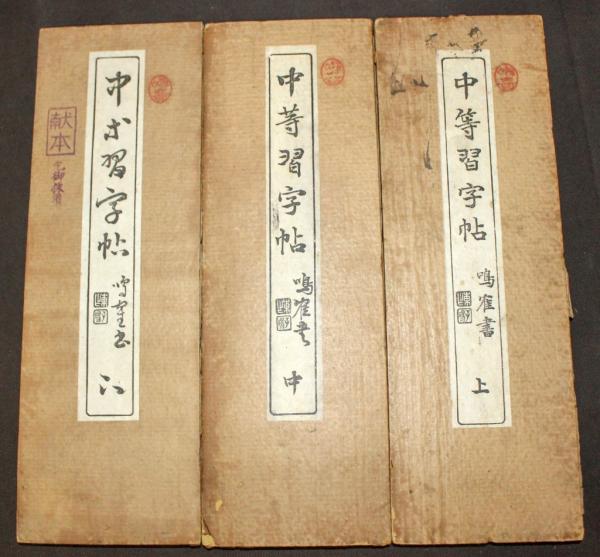 中等習字帖 鳴雀書 上
中等習字帖 鳴雀書 中
中等習字帖 鳴雀書 下
献本